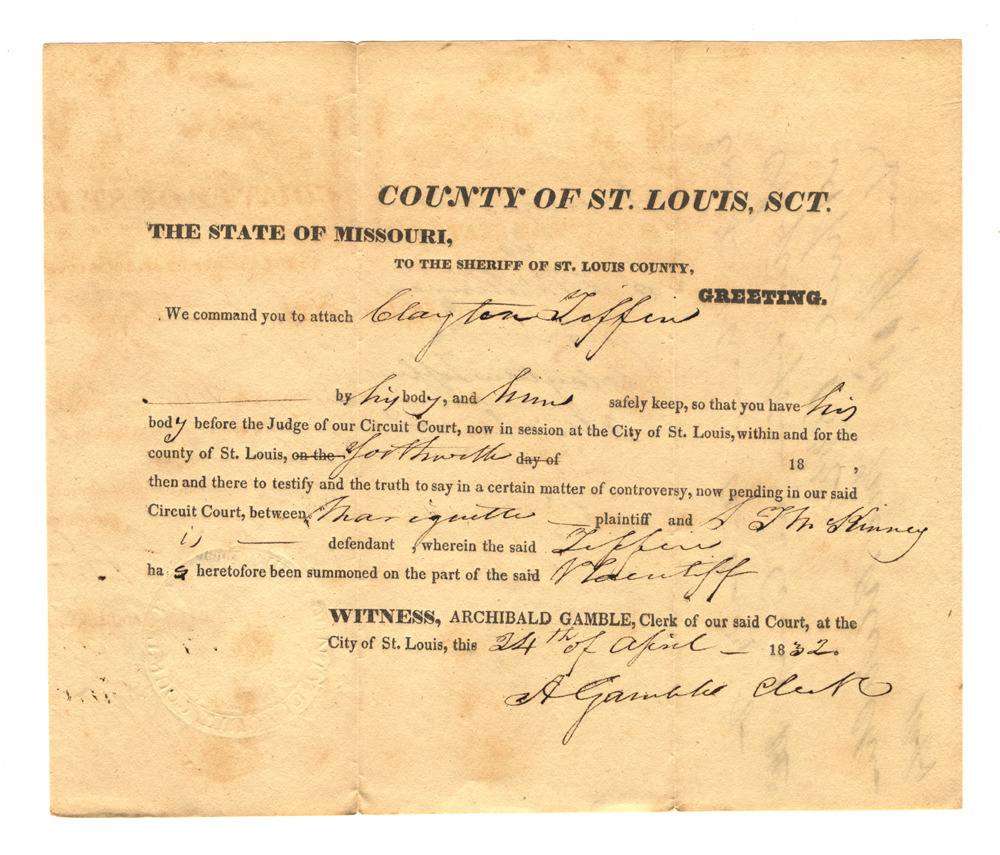 COUNTY OF ST. LOUIS, SCT.
THE STATE OF MISSOURI,
TO THE SHERIFF OF ST. LOUIS COUNTY,
GREETING.
We command you to attach Clayton Tiffin
by his body, and him safely keep, so that you have his
body before the Judge of our Circuit Court, now in session at the City of St. Louis, within and for the
county of St. Louis, on the forthwith day of 18 ,
then and there to testify and the truth to say in a certain matter of controversy, now pending in our said
Circuit Court, between Marguette — plaintiff and S T McKinney
is — defendant , wherein the said Tiffin
has heretofore been summoned on the part of the said Plaintiff
WITNESS, ARCHIBALD GAMBLE, Clerk of our said Court, at the
City of St. Louis, this 24th of April — 1832.
A Gamble Clerk